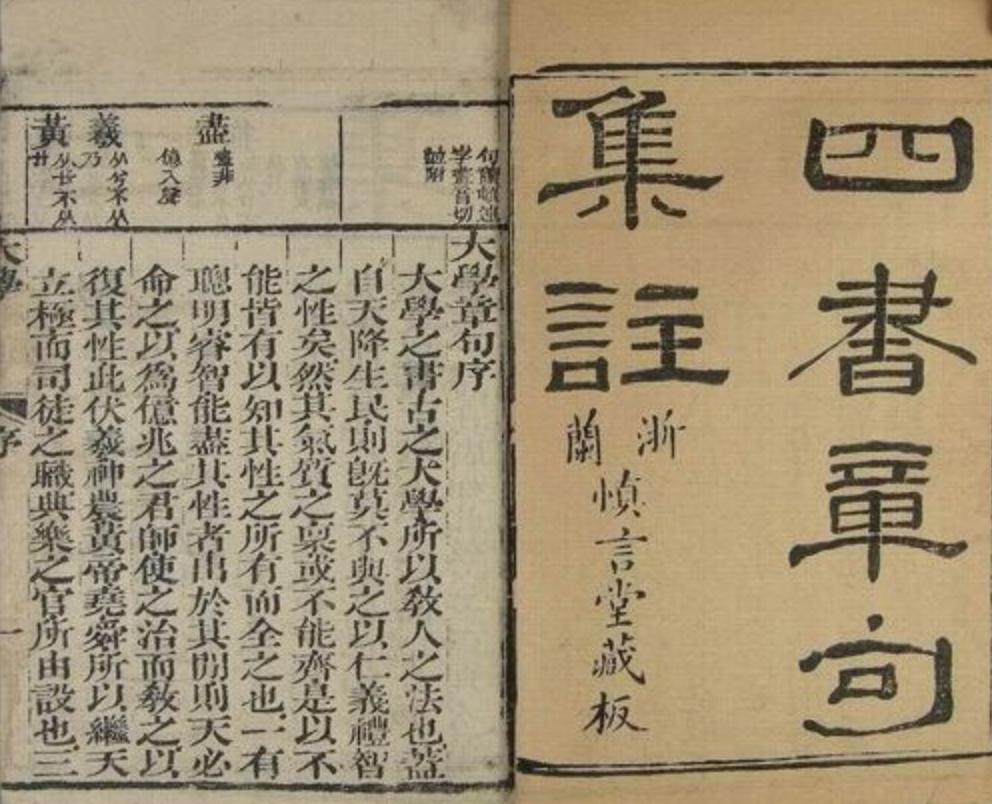 四書章句
集註
浙
蘭
慎言堂藏板
句讀
字畫音切
並附
大學章句序
大學之書古之大學所以敎人之法也蓋
自天降生民則旣莫不與之以仁義禮智
之性矣然其氣質之稟或不能齊是以不
能皆有以知其性之所有而全之也一有
聰明睿智能盡其性者出於其間則天必
命之以爲億兆之君師使之治而敎之以
復其性此伏羲神農黃帝堯舜所以繼天
立極而司徒之職典樂之官所由設也三
盡
羲
黃
大學
序
一